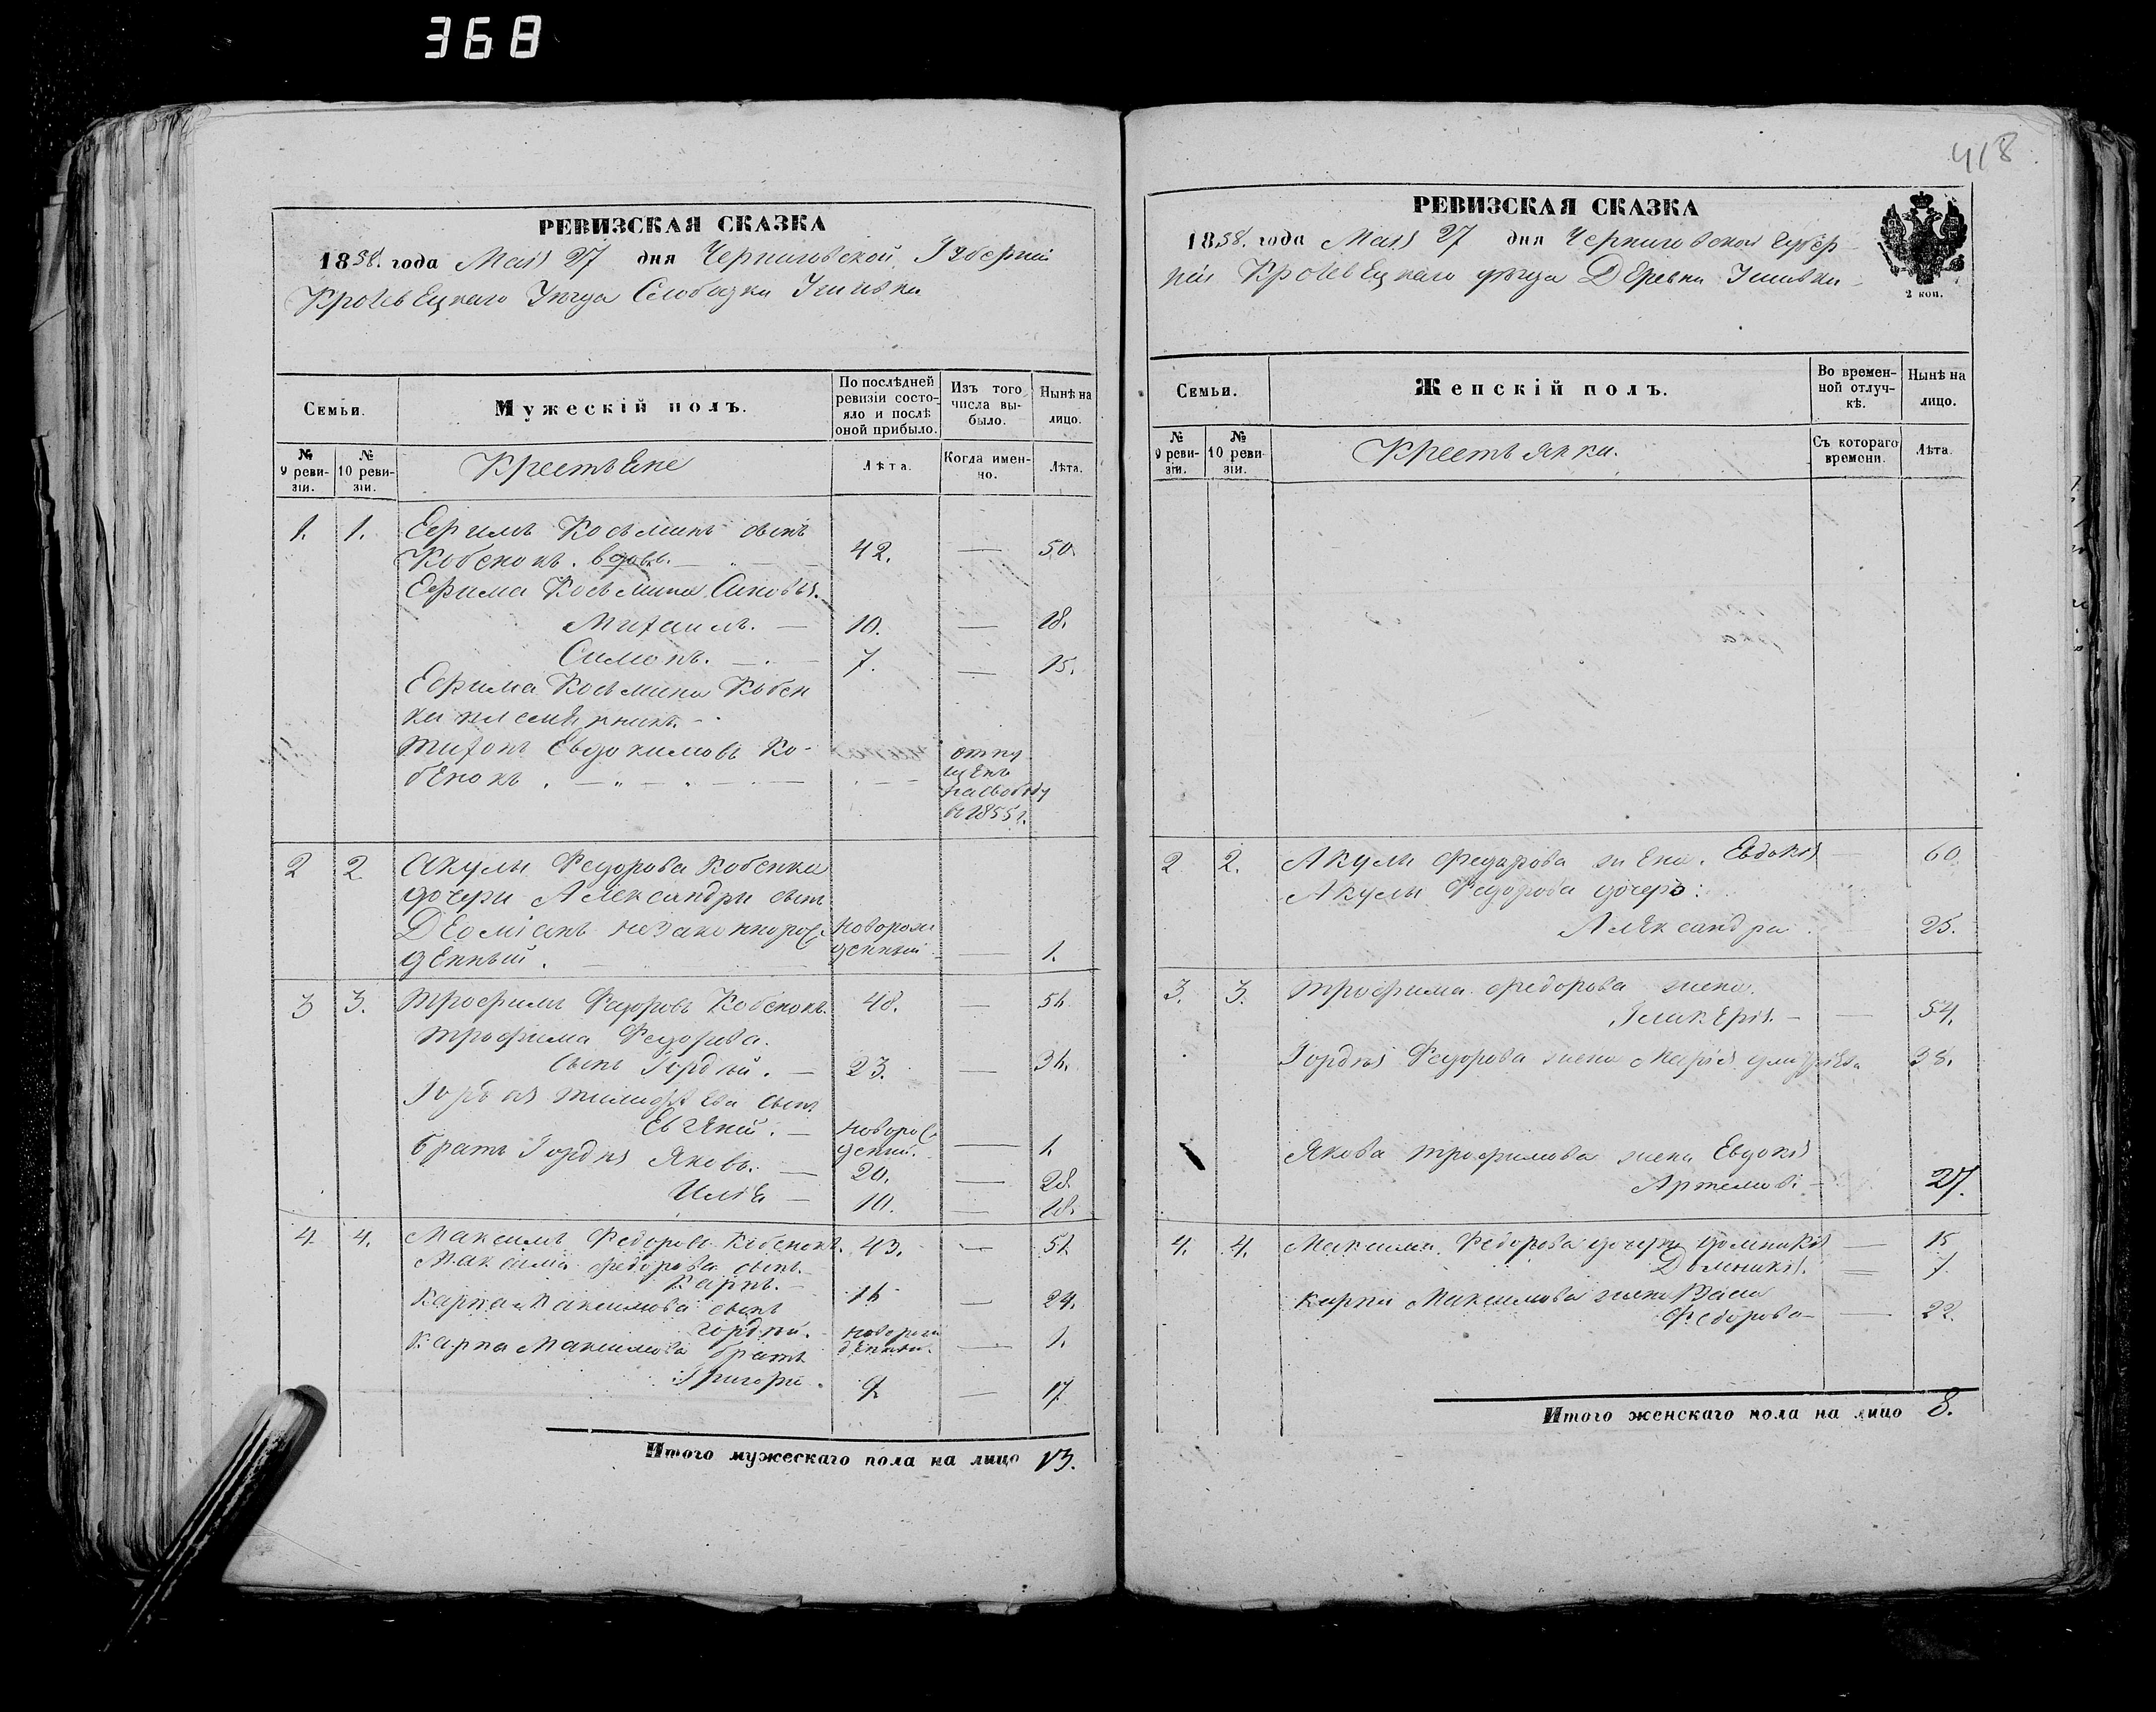 368
РЕВИЗСКАЯ СКАЗКА
1858. года Маія 27 дня Черниговской Губерніи
Кролевецкаго Уезда Слободки
Семьи.
Мужескій полъ.
По послѣдней ревизіи состояло и послѣ оной прибыло.
Изъ того числа выбыло.
Нынѣ на лицо.
№ 9 ревизіи.
№ 10 ревизіи.
Крестьяне
Лѣта.
Когда именно.
Лѣта.
1. 1. Ефимъ Косьминъ сынъ
Кобенокъ. вдовъ. 42. — 50.
Ефима Косьмина Сыновья.
Михаилъ. — 10. — 18.
Симонъ. — 7. — 15.
Ефима Косьмина Кобен
ка племянникъ. -
Тихонъ Евдокимовъ Ко-
бенокъ. — отпу
щенъ
насвободу
въ 1855 г.
2 2 Акулы Федорова Кобенка
дочери Александры сынъ
Деоміанъ незаконнорож
денный. — новорож
денный — 1.
3 3. Трофимъ Федоровъ Кобенокъ. 48. — 56
Трофима Федорова.
сынъ Гордѣй. — 23. — 31.
сынъ
— новорож
деный. — 1.
братъ Гордѣя Яковъ. — 20. — 28.
Илія — 10. — 18.
4. 4. Максимъ Федоровъ Кобенокъ. 43. — 51.
Максима Федорова сынъ
Карпъ. — 16 — 24.
Карпа Максимова сынъ
Гордѣй. новорож
денный. — 1.
Карпа Максимова братъ
Григорій. 9. — 17.
Итого мужескаго пола на лицо 13.
418
РЕВИЗСКАЯ СКАЗКА
1858. года Маія 27 дня Черниговской Губер-
ніи Кролевецкаго уезда Деревни
2 коп.
Семьи.
Женскій полъ.
Во временной отлучкѣ.
Нынѣ на лицо.
№ 9 ревизіи.
№ 10 ревизіи.
Крестьянки.
Съ котораго времени.
Лѣта.
2 2. Акулы Федорова жена. Евдокія — 60.
Акулы Федорова дочерь:
Александра. 25.
3. 3. Трофима Федорова жена.
Гликерія. — 54.
Гордѣя Федорова жена Марія 38.
Якова Трофимова жена Евдокія
Артемова. — 27.
4. 4. Максима Федорова дочери — 15
Домникія. — 7
Карпа Максимова жена
Федорова — 22.
Итого женскаго пола на лицо 8.